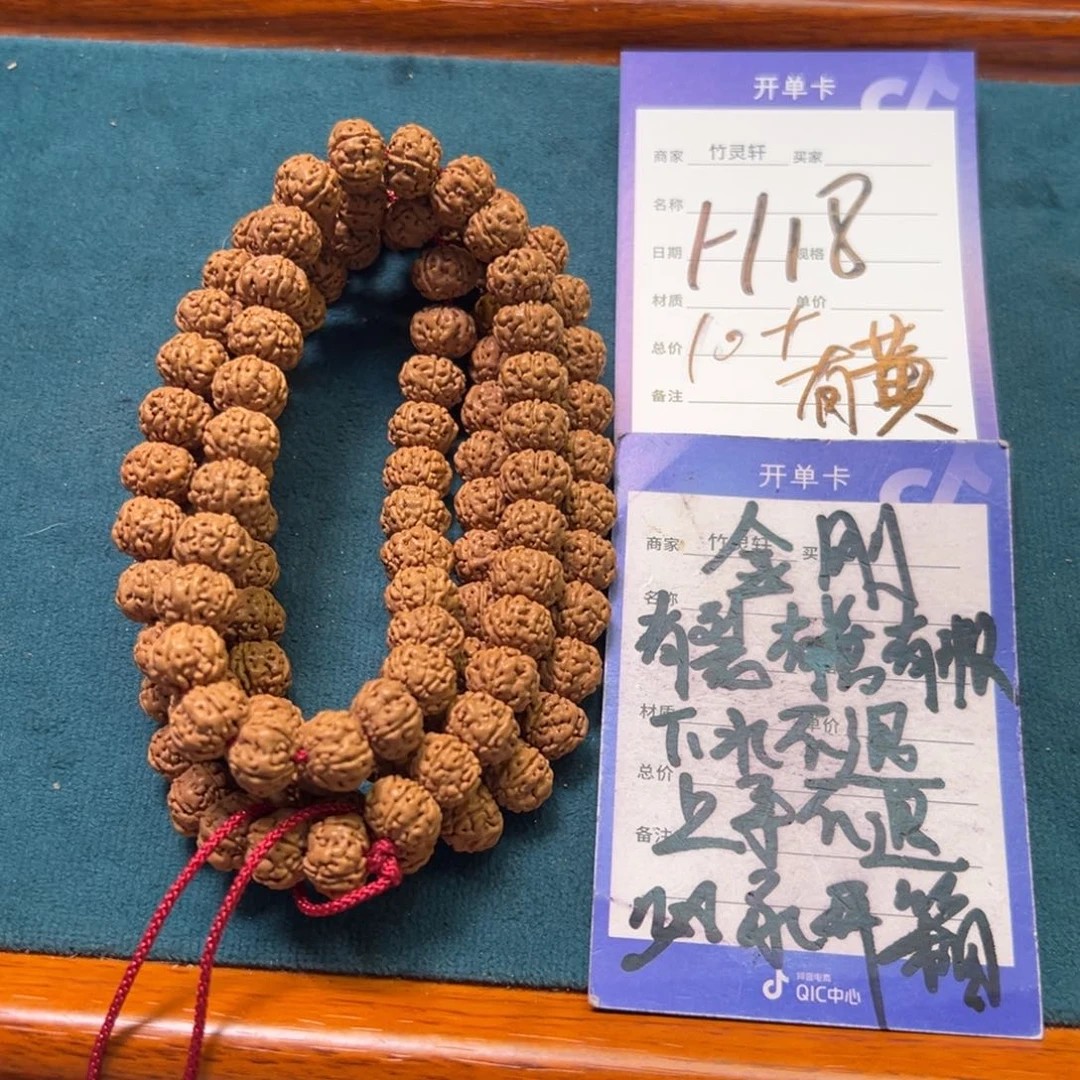 开单卡
商家 竹灵轩 买家
名称
H18
日期 规格
材质 单价
10+
总价
有黄
备注
开单卡
商家 竹灵轩 买
金刚
名称
有裂有黄有激
材质 单价
下水不退
总价
上手不退
备注
确认开箱
抖音电商
QIC中心